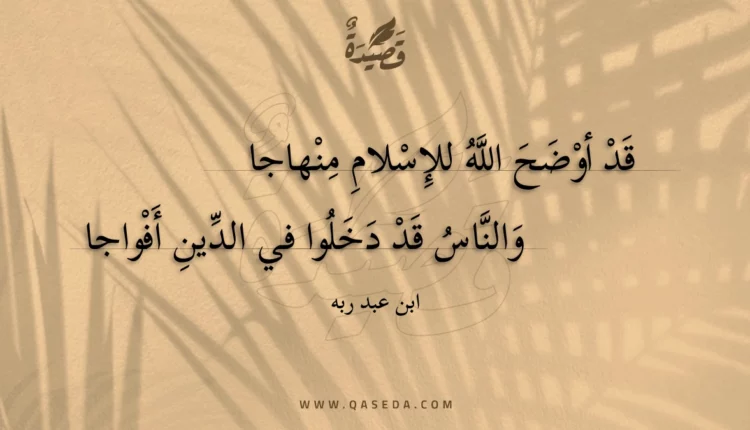 قَصِيْدَةٌ
قَدْ أوْضَحَ اللَّهُ للإِسْلامِ مِنْهاجا
وَالنَّاسُ قَدْ دَخَلُوا في الدِّينِ أَفْواجا
ابن عبد ربه
WWW.QASEDA.COM